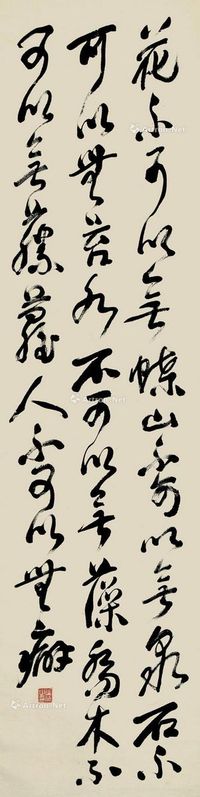 花不可以無蝶山不可以無泉石不
可以無苔水不可以無藻喬木不
可以無藤蘿人不可以無癖